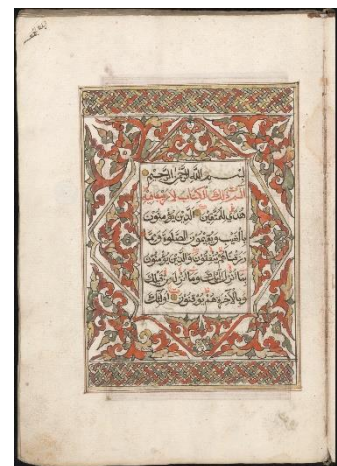 بسم الله الرحمن الرحيم
الم ذلك الكتاب لا ريب فيه
هدى للمتقين الذين يؤمنون
بالغيب ويقيمون الصلوة ومما
رزقناهم ينفقون والذين يؤمنون
بما أنزل إليك وما أنزل من قبلك
وبالآخرة هم يوقنون أولئك